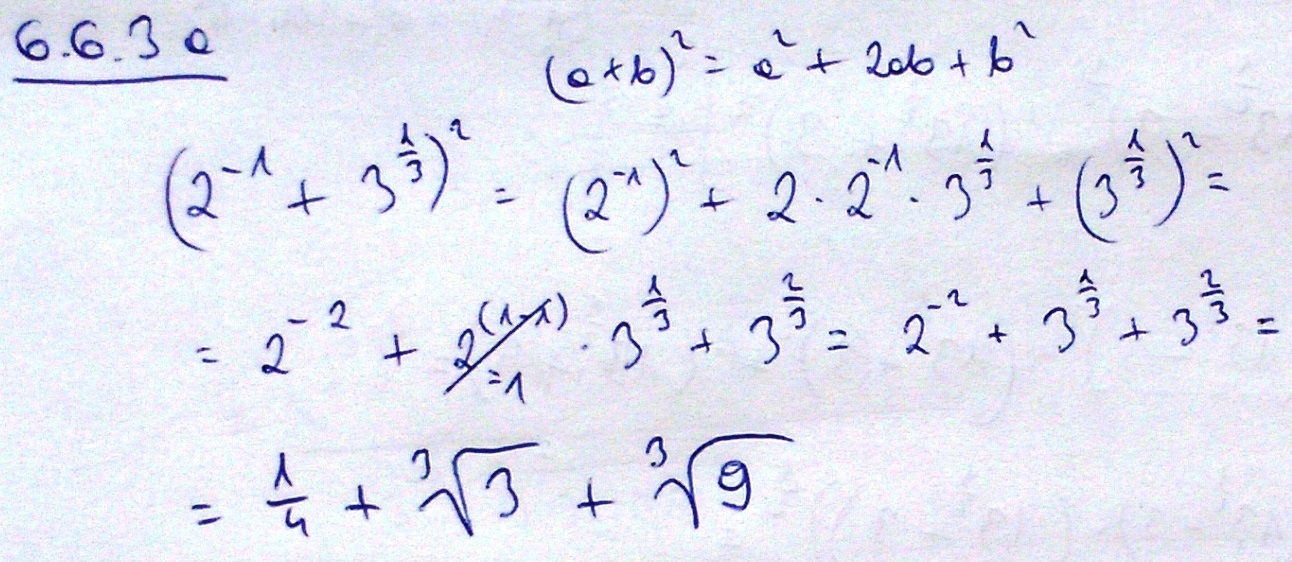 6.6.3 a
(a+b)² = a² + 2ab + b²
(2⁻¹ + 3^(1/3))² = (2⁻¹)² + 2·2⁻¹·3^(1/3) + (3^(1/3))² =
= 2⁻² + 2^(1-1) =1 · 3^(1/3) + 3^(2/3) = 2⁻² + 3^(1/3) + 3^(2/3) =
= 1/4 + ³√3 + ³√9